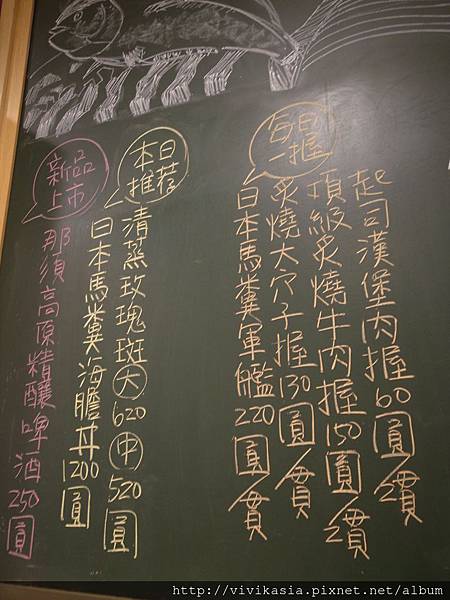 每日一握
起司漢堡肉握60圓/2貫
頂級炙燒牛肉握150圓/2貫
炙燒大穴子握130圓/貫
日本馬糞軍艦220圓/貫
本日推荐
清蒸玫瑰斑大620中520圓
日本馬糞海膽丼1200圓
新品上市
那須高原精釀啤酒250圓
http://vivikasia.pixnet.net/album